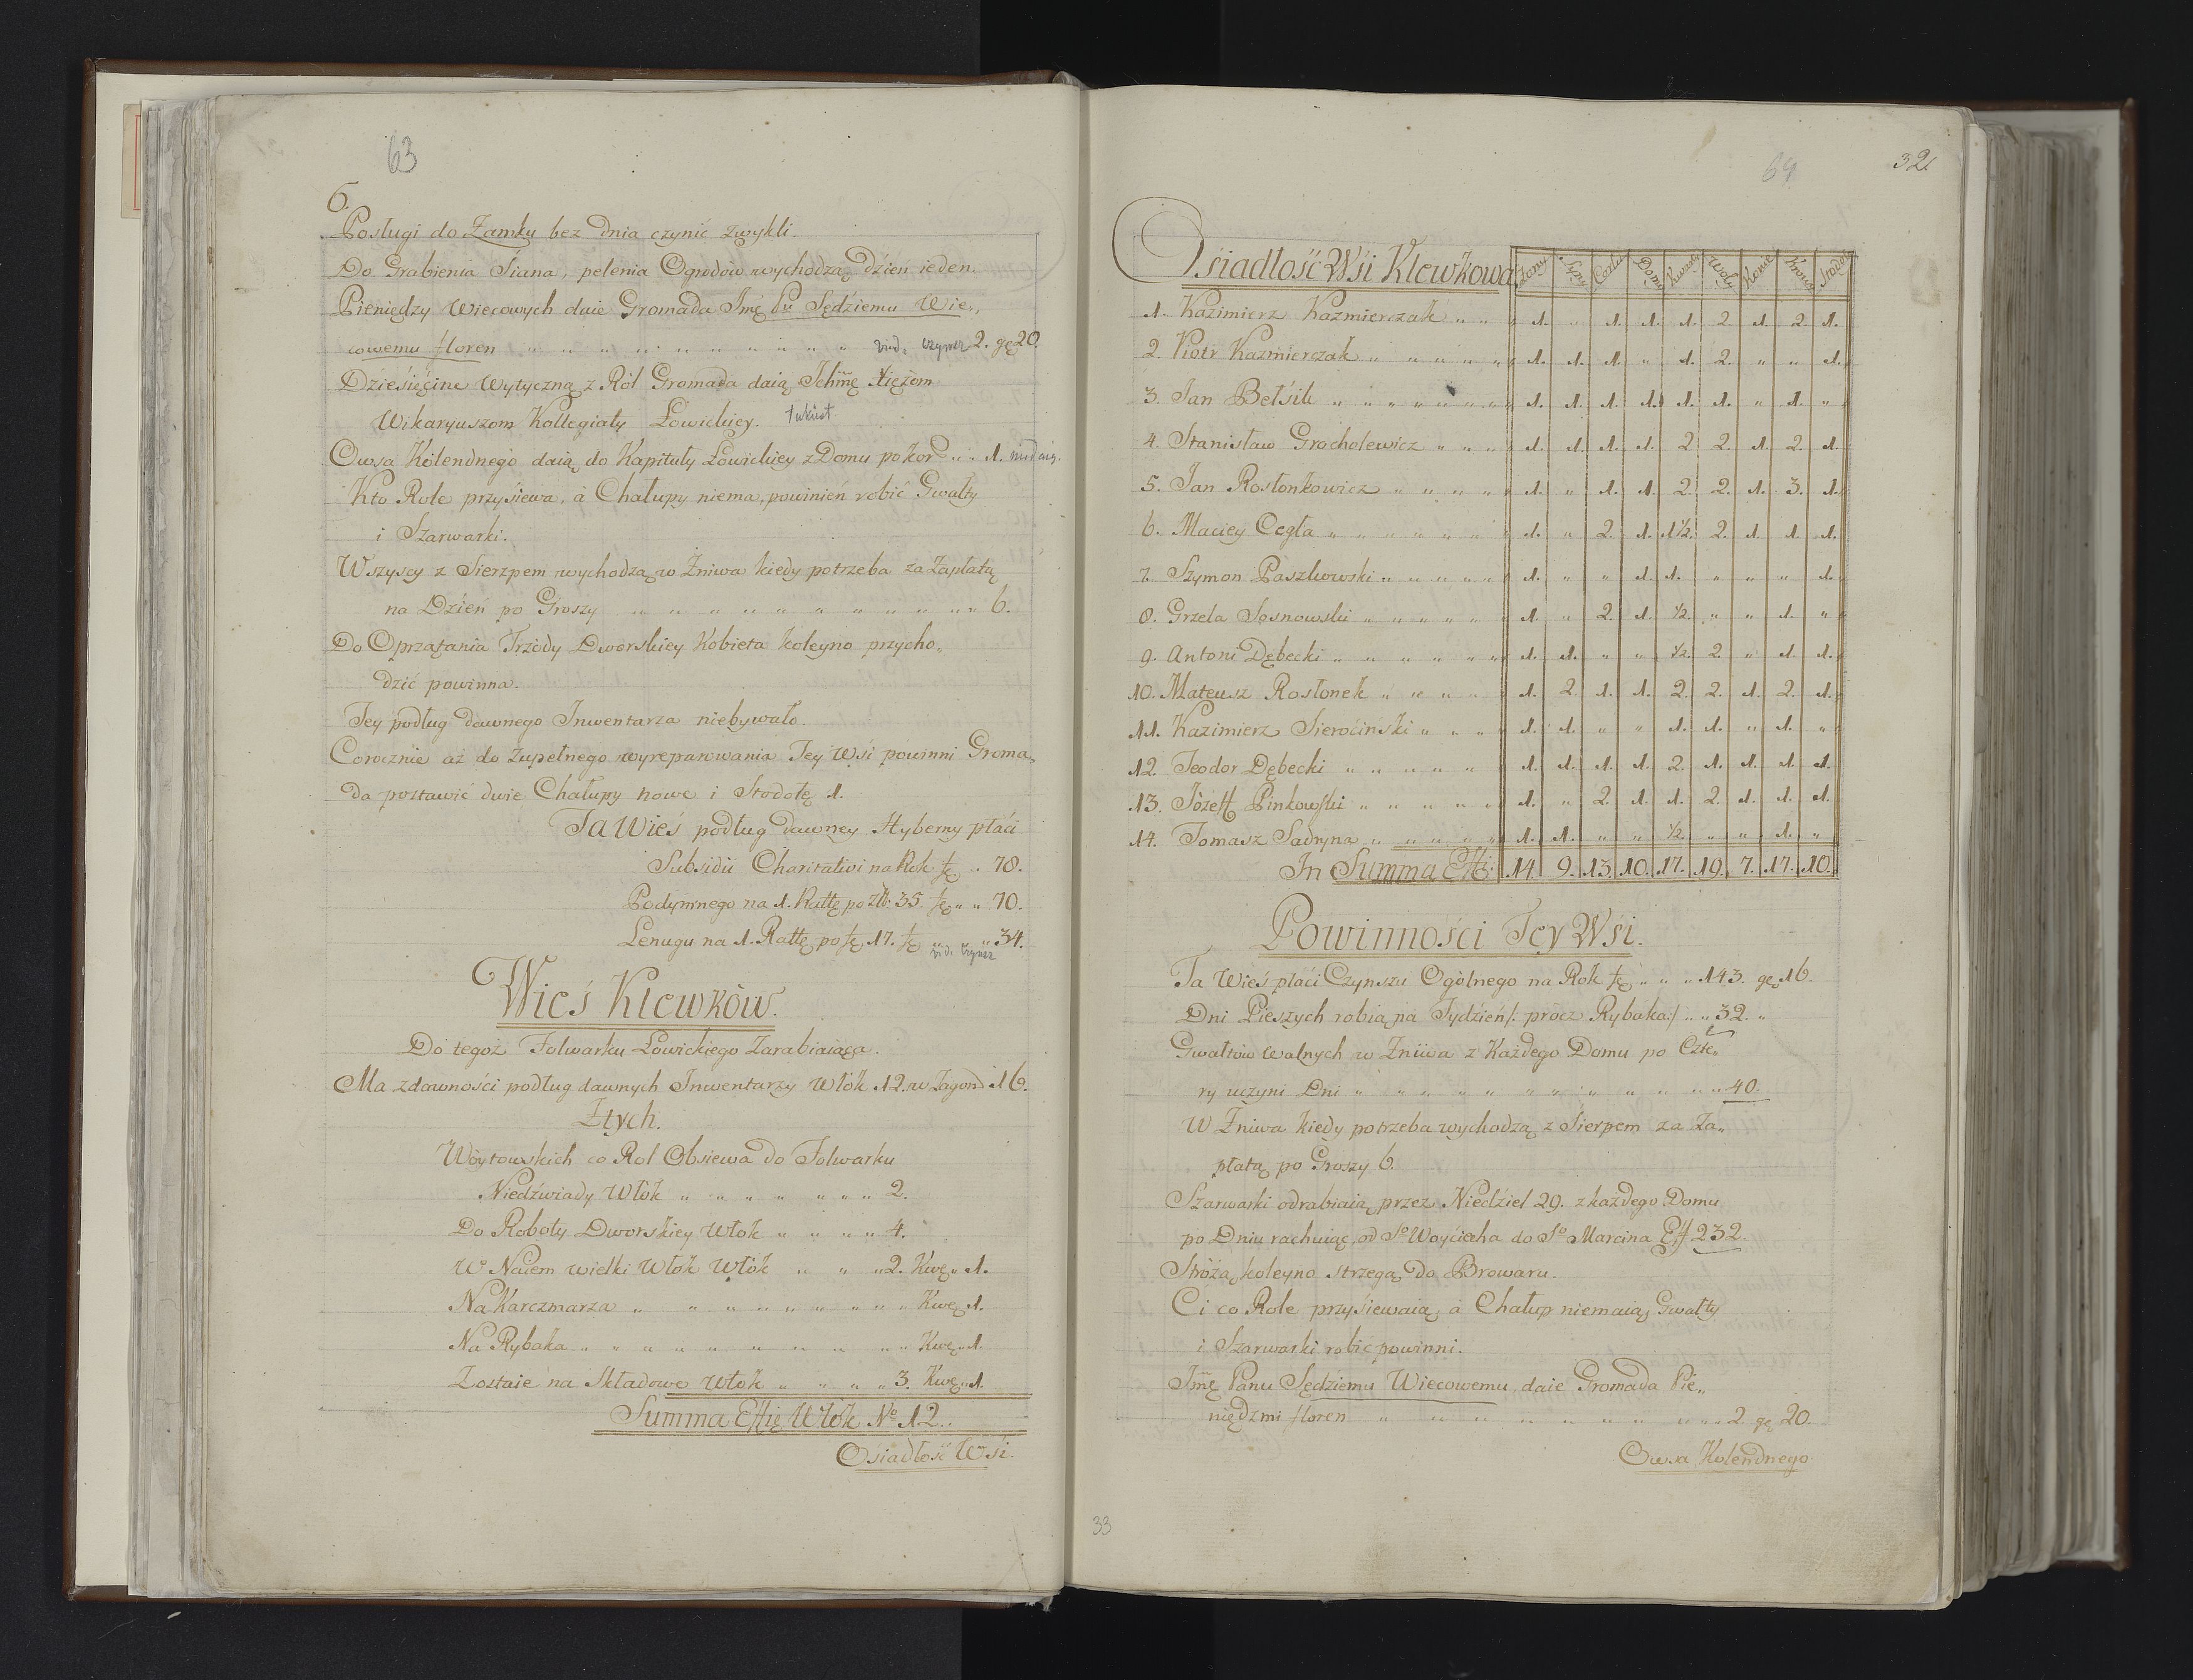 63
6.
Posługi do Zamku bez dnia czynić zwykli.
Do Grabienia Siana, pelenia Ogrodów wychodzą dzień ieden.
Pieniędzy Wiecowych daie Gromada Jmę Pu Sędziemu Wie„
cowemu floren „ „ „ „ „ „ „ „ „ 2. gę 20.
Dziesięcine Wytyczną z Ról Gromada daią Ichmę Xiężom
Wikaryuszom Kollegiaty Łowickiey.
Owsa Kolendnego daią do Kapituły Łowickiey z Domu po kor „ „ 1.
Kto Role przysiewa, á Chałupy niema, powinień robić Gwałty
i Szarwarki.
Wszyscy z Sierzpem wychodzą w Żniwa kiedy potrzeba za Zapłatą
na Dzień po Groszy „ „ „ „ „ „ „ „ „ „ 6.
Do Oprzątania Trzody Dworskiey Kobieta koleyno przycho„
dzić powinna.
Tey podług dawnego Inwentarza niebywało.
Corocznie aż do Zupełnego wyreparowania Tey Wsi powinni Groma„
da postawić dwie Chałupy nowe i Stodołę 1.
Ta Wieś podług dawney Hyberny płaci
Subsidii Charitativi na Rok fę „ 78.
Podymnego na 1. Rattę po Zł: 35 fę „ „ 70.
Lenugu na 1. Rattę po fę 17. fę „ „ „ 34.
Wieś Klewków.
Do tegoż Folwarku Łowickiego Zarabiaiąca.
Ma zdawności podług dawnych Inwentarzy Włók 12. w Zagonó 16.
Ztych.
Wóytowskich co Rol Obsiewa do Folwarku
Niedźwiady Włók „ „ „ „ „ „ „ 2.
Do Roboty Dworskiey Włok „ „ „ „ 4.
W Naiem wielki Włok Włók „ „ „ 2. Kwę „ 1.
Na Karczmarza „ „ „ „ „ „ „ „ Kwę 1.
Na Rybaka „ „ „ „ „ „ „ „ „ Kwę „ 1.
Zostaie na Składowe Włok „ „ „ „ 3. Kwę „ 1.
Summa Effię Włók No 12.
Osiadłość Wsi.
64
32.
Osiadłość Wsi Klewkowa Żony Syny Córki Domy Kwarty Woły Konie Krowy Stodoły
1. Kaźimierz Kaźmierczak „ „ „ 1. „ 1. 1. 1. 2. 1. 2. 1.
2. Piotr Kaźmierczak „ „ „ „ „ 1. 1. 1. „ 1. 2. „ „ 1.
3. Jan Bełsik „ „ „ „ „ „ „ 1. 1. 1. 1. 1. 1. „ 1. „
4. Stanisław Grocholewicz „ „ „ 1. 1. 1. 1. 2. 2. 1. 2. 1.
5. Jan Rosłonkowicz „ „ „ „ „ 1. „ 1. 1. 2. 2. 1. 3. 1.
6. Maciey Cegła „ „ „ „ „ „ 1. „ 2. 1. 1½. 2. 1. 1. 1.
7. Szymon Paszkowski „ „ „ „ „ 1. „ „ 1. 1. „ „ „ 1.
8. Grzela Sosnowski „ „ „ „ „ 1. „ 2. 1. ½. „ „ 1. „
9. Antoni Dębecki „ „ „ „ „ „ 1. 1. „ „ ½. 2. „ 1. 1.
10. Mateusz Rosłonek „ „ „ „ „ 1. 2. 1. 1. 2. 2. 1. 2. 1.
11. Kazimierz Sierocinski „ „ „ „ 1. 1. „ „ 1. 1. „ 1. „
12. Teodor Dębecki „ „ „ „ „ „ 1. 1. 1. 1. 2. 1. 1. 1. 1.
13. Józeff Pinkowski „ „ „ „ „ „ 1. „ 2. 1. 1. 2. 1. 1. 1.
14. Tomasz Sadryna „ „ „ „ „ „ 1. 1. „ „ ½. „ „ 1. „
In Summa Eff: 14. 9. 13. 10. 17. 19. 7. 17. 10.
Powinności Tey Wsi.
Ta Wieś płaci Czynszu Ogólnego na Rok fę „ „ „ 143. gę 16.
Dni Pieszych robią na Tydzień /: prócz Rybaka :/ „ „ 32. „
Gwałtów walnych w Żniwa z Każdego Domu po Czte„
ry uczyni Dni „ „ „ „ „ „ „ „ „ „ „ 40.
W Żniwa kiedy potrzeba wychodzą z Sierpem za Za„
płatą po Groszy 6.
Szarwarki odrabiaią przez Niedziel 29. z każdego Domu
po Dniu rachuiąc od So Woyciecha do So Marcina Eff 232.
Stróżą koleyno strzegą do Browaru.
Ci co Role przysiewaią, á Chałup niemaią, Gwałty
i Szarwarki robic powinni.
Jmę Panu Sędziemu Wiecowemu daie Gromada Pie„
niędzmi floren „ „ „ „ „ „ „ „ „ „ 2. gę 20.
Owsa Kolendnego
33